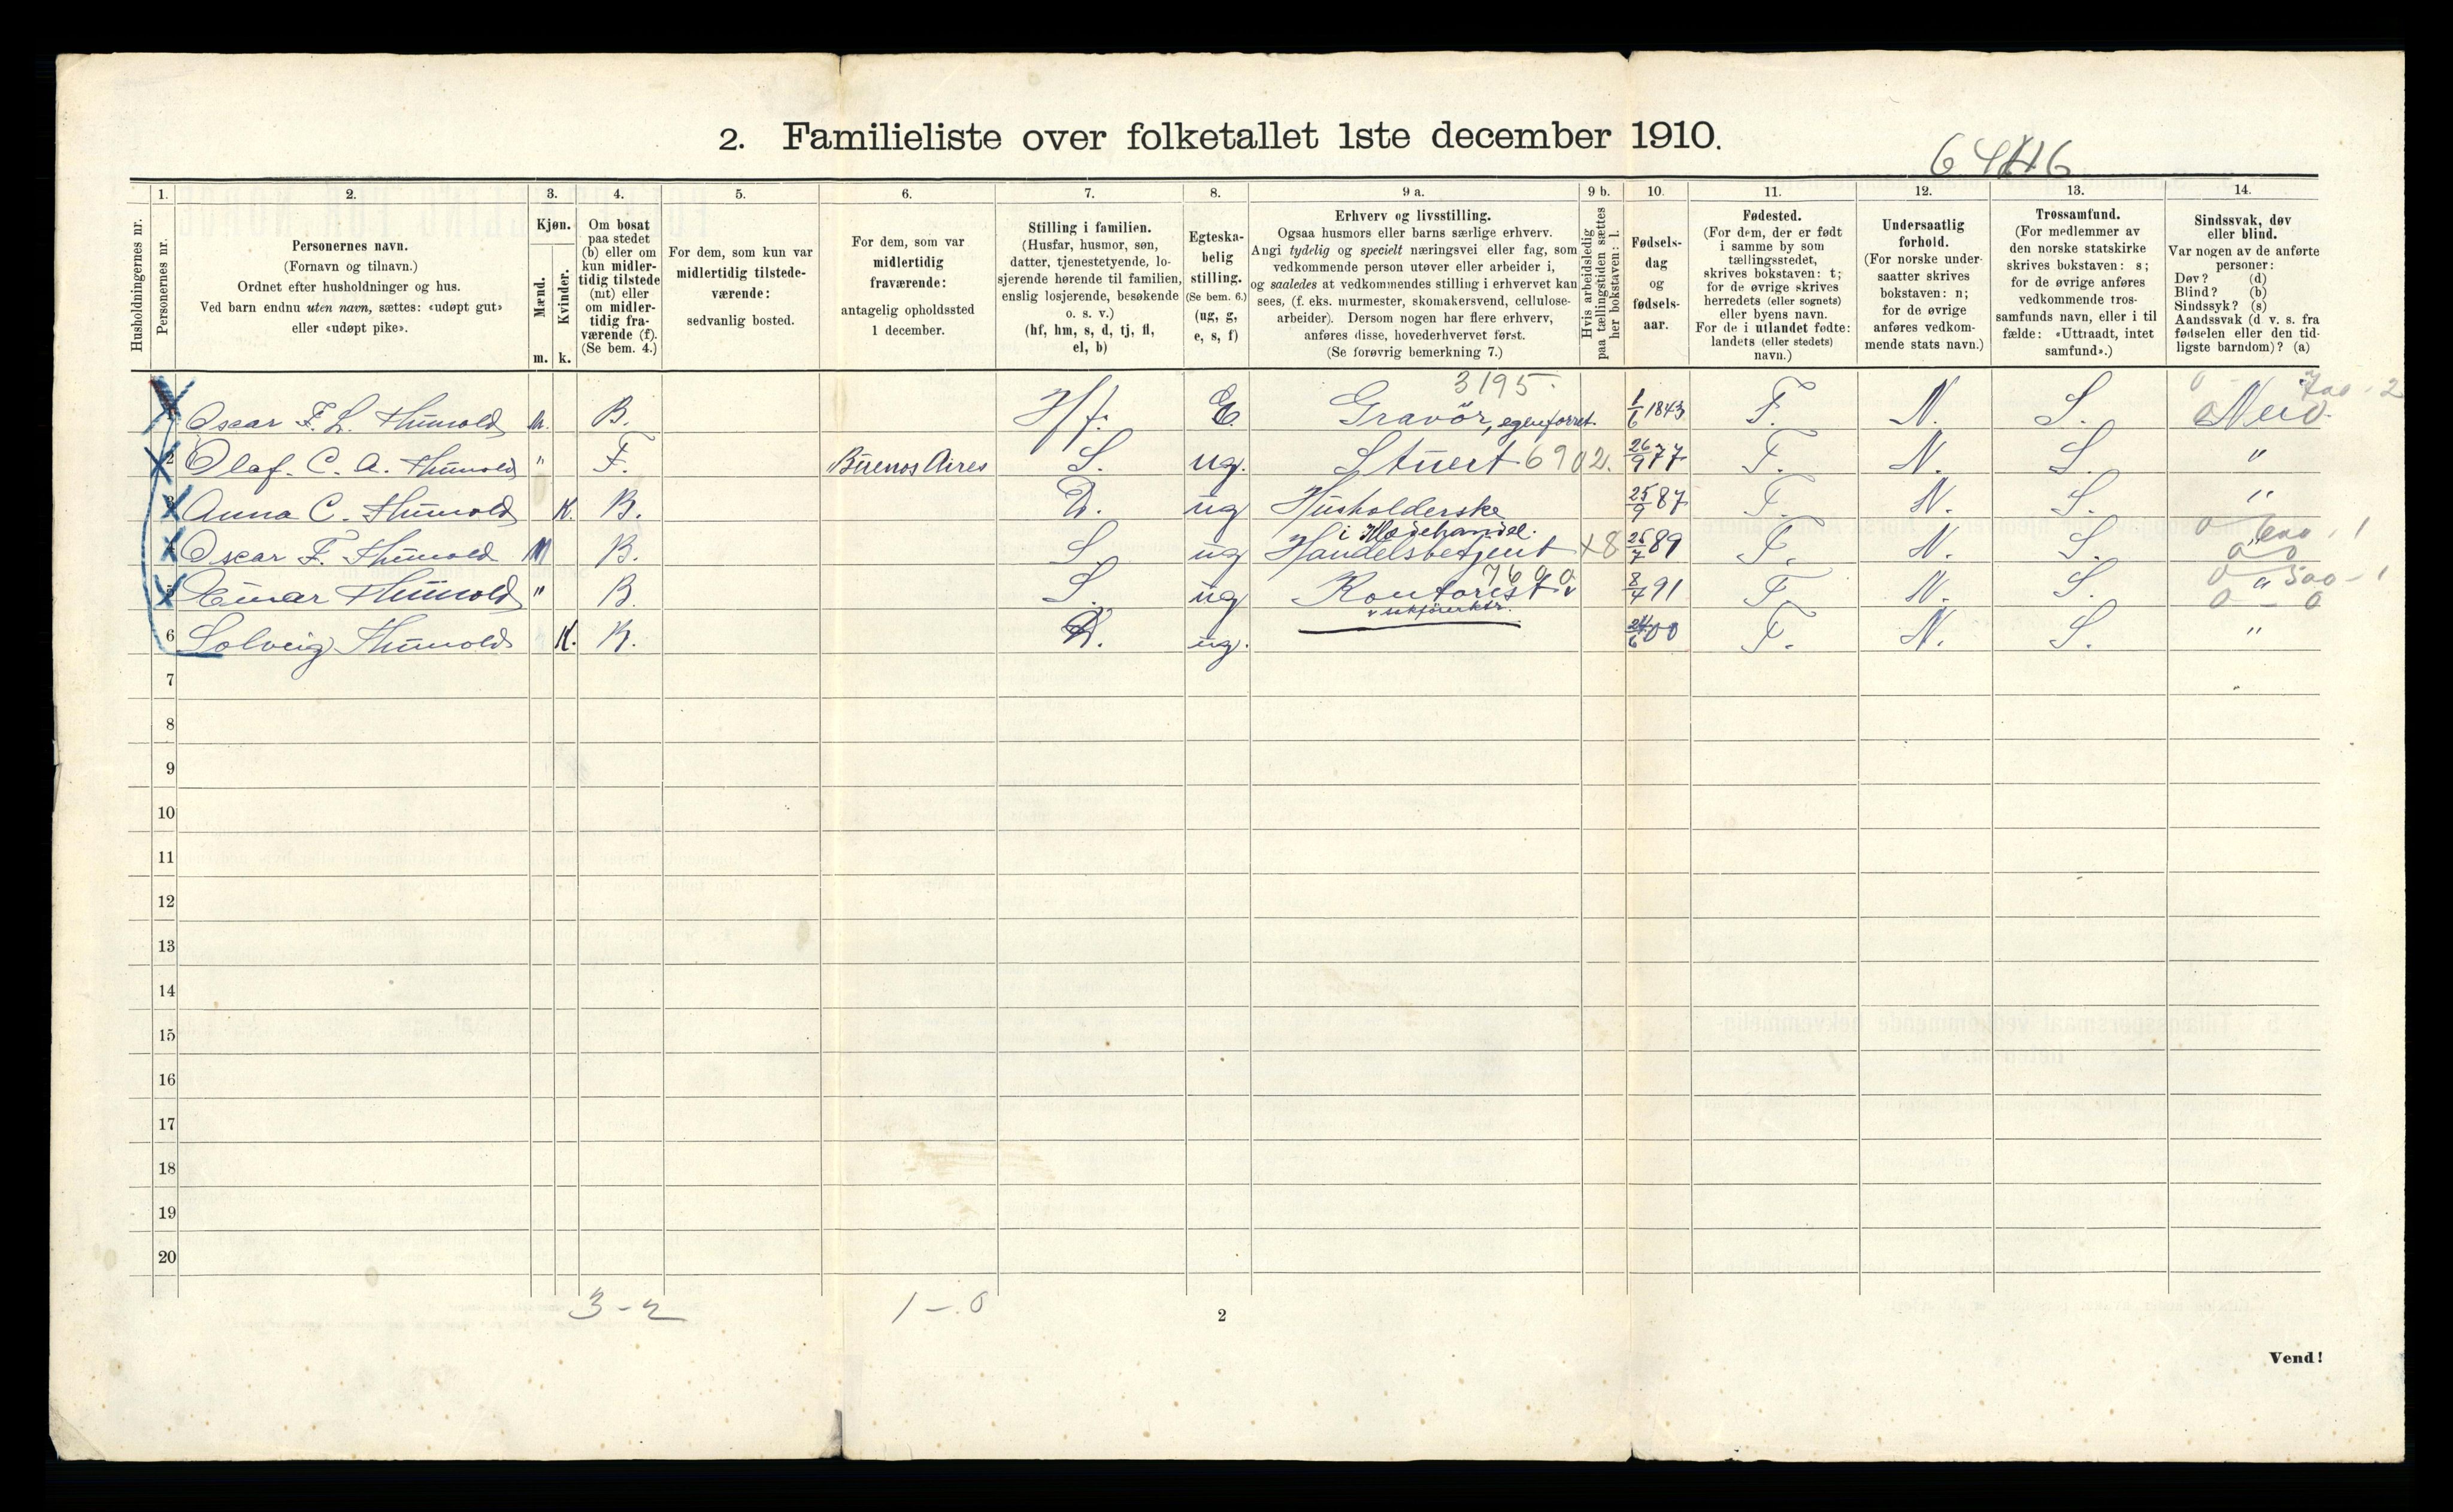 2. Familieliste over folketallet 1ste december 1910.
Husholdningernes nr.
1.
Personernes nr.
2.
Personernes navn.
(Fornavn og tilnavn.)
Ordnet efter husholdninger og hus.
Ved barn endnu uten navn, sættes: «udøpt gut»
eller «udøpt pike».
3.
Kjøn.
Mænd.
Kvinder.
m. k.
4.
Om bosat
paa stedet
(b) eller om
kun midler-
tidig tilstede
(mt) eller
om midler-
tidig fra-
værende (f).
(Se bem. 4.)
5.
For dem, som kun var
midlertidig tilstede-
værende:
sedvanlig bosted.
6.
For dem, som var
midlertidig
fraværende:
antagelig opholdssted
1 december.
7.
Stilling i familien.
(Husfar, husmor, søn,
datter, tjenestetyende, lo-
sjerende hørende til familien,
enslig losjerende, besøkende
o. s. v.)
(hf, hm, s, d, tj, fl,
el, b)
8.
Egteska-
belig
stilling.
(Se bem. 6.)
(ug, g,
e, s, f)
9 a.
Erhverv og livsstilling.
Ogsaa husmors eller barns særlige erhverv.
Angi tydelig og specielt næringsvei eller fag, som
vedkommende person utøver eller arbeider i,
og saaledes at vedkommendes stilling i erhvervet kan
sees, (f. eks. murmester, skomakersvend, cellulose-
arbeider). Dersom nogen har flere erhverv,
anføres disse, hovederhvervet først.
(Se forøvrig bemerkning 7.)
9 b.
Hvis arbeidsledig
paa tællingstiden sættes
her bokstaven: l.
10.
Fødsels-
dag
og
fødsels-
aar.
11.
Fødested.
(For dem, der er født
i samme by som
tællingsstedet,
skrives bokstaven: t;
for de øvrige skrives
herredets (eller sognets)
eller byens navn.
For de i utlandet fødte:
landets (eller stedets)
navn.)
12.
Undersaatlig
forhold.
(For norske under-
saatter skrives
bokstaven: n;
for de øvrige
anføres vedkom-
mende stats navn.)
13.
Trossamfund.
(For medlemmer av
den norske statskirke
skrives bokstaven: s;
for de øvrige anføres
vedkommende tros-
samfunds navn, eller i til
fælde: «Uttraadt, intet
samfund».)
14.
Sindssvak, døv
eller blind.
Var nogen av de anførte
personer:
Døv? (d)
Blind? (b)
Sindssyk? (s)
Aandssvak (d. v. s. fra
fødselen eller den tid-
ligste barndom)? (a)
3195
Oscar F. L. Thünold m. B. Hf. E. Gravör, egen forret. 1/6 1843 T. N. S. Nei
2 Olaf. C. A. Thünold " F. Buenos Aires S. ug. Stuert 6902. 26/9 77 T. N. S. "
3 Anna C. Thünold K. B. D. ug Husholderske 25/9 87 T. N. S. "
i Klædehandel.
Oscar F. Thünold M B. S. ug Handelsbetjent 25/7 89 T. N. S. "
5 Einar Thünold " B. S. ug Kontorist 8/4 91 T. N. S. "
6 Solveig Thünold K. B. D. ug. 24/6 00 T. N. S. "
7
8
9
10
11
12
13
14
15
16
17
18
19
20
3-2 1-0
2
Vend!